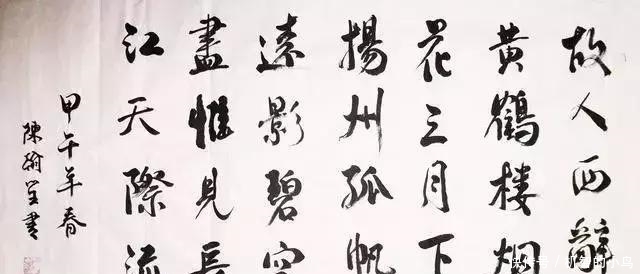 故人西辭
黄鶴樓烟
花三月下
揚州孤帆
遠影碧空
盡惟見長
江天際流
甲午年春
陳 書
快传号